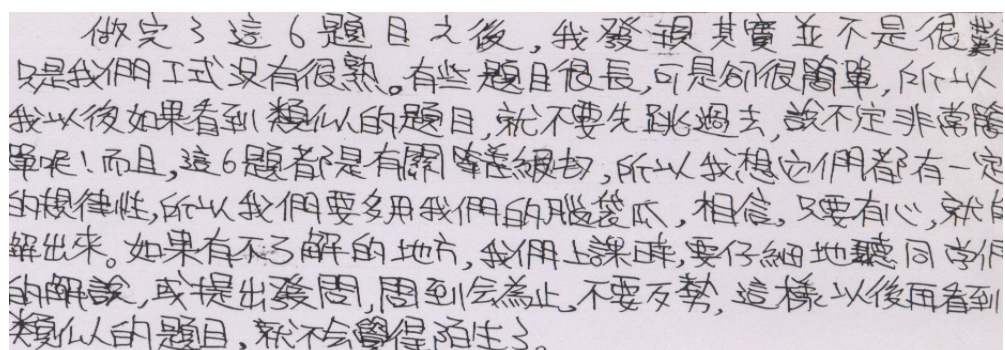 做完了這6題目之後,我發現其實並不是很難
只是我們工式沒有很熟。有些題目很長,可是卻很簡單,所以
我以後如果看到類似的題目,就不要先跳過去,說不定非常簡
單呢!而且,這6題都是有關等差級數,所以我想它們都有一定
的規律性,所以我們要多用我們的腦袋瓜,相信,只要有心,就
解出來。如果有不了解的地方,我們上課時,要仔細地聽同学們
的解說,或提出發問,問到会為止,不要歹勢,這樣以後再看到
類似的題目,就不会覺得陌生了。